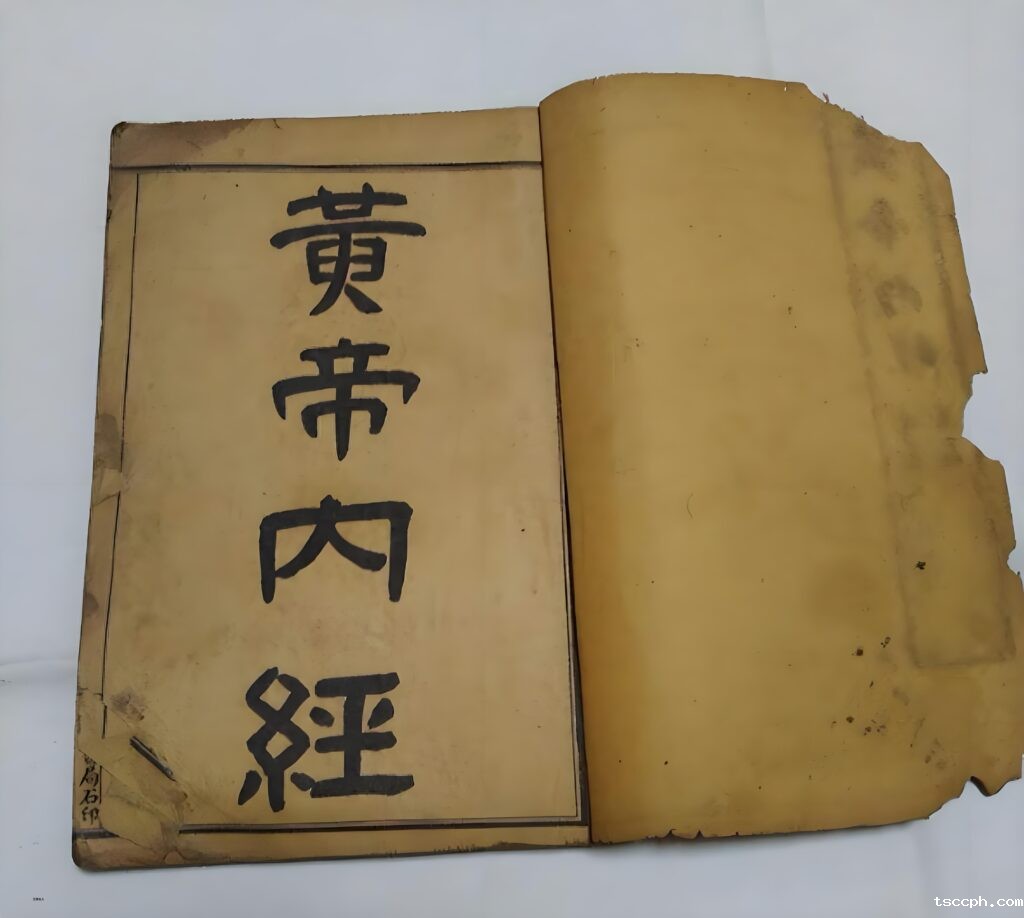 黃帝內經
局石印
tsccph.com